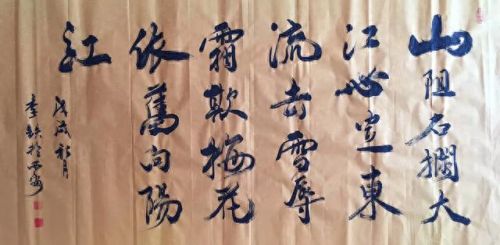 山阻石攔大
江必定東
流去雪辱
霜欺梅花
依舊向陽
紅
戊戌秋月
李於西安